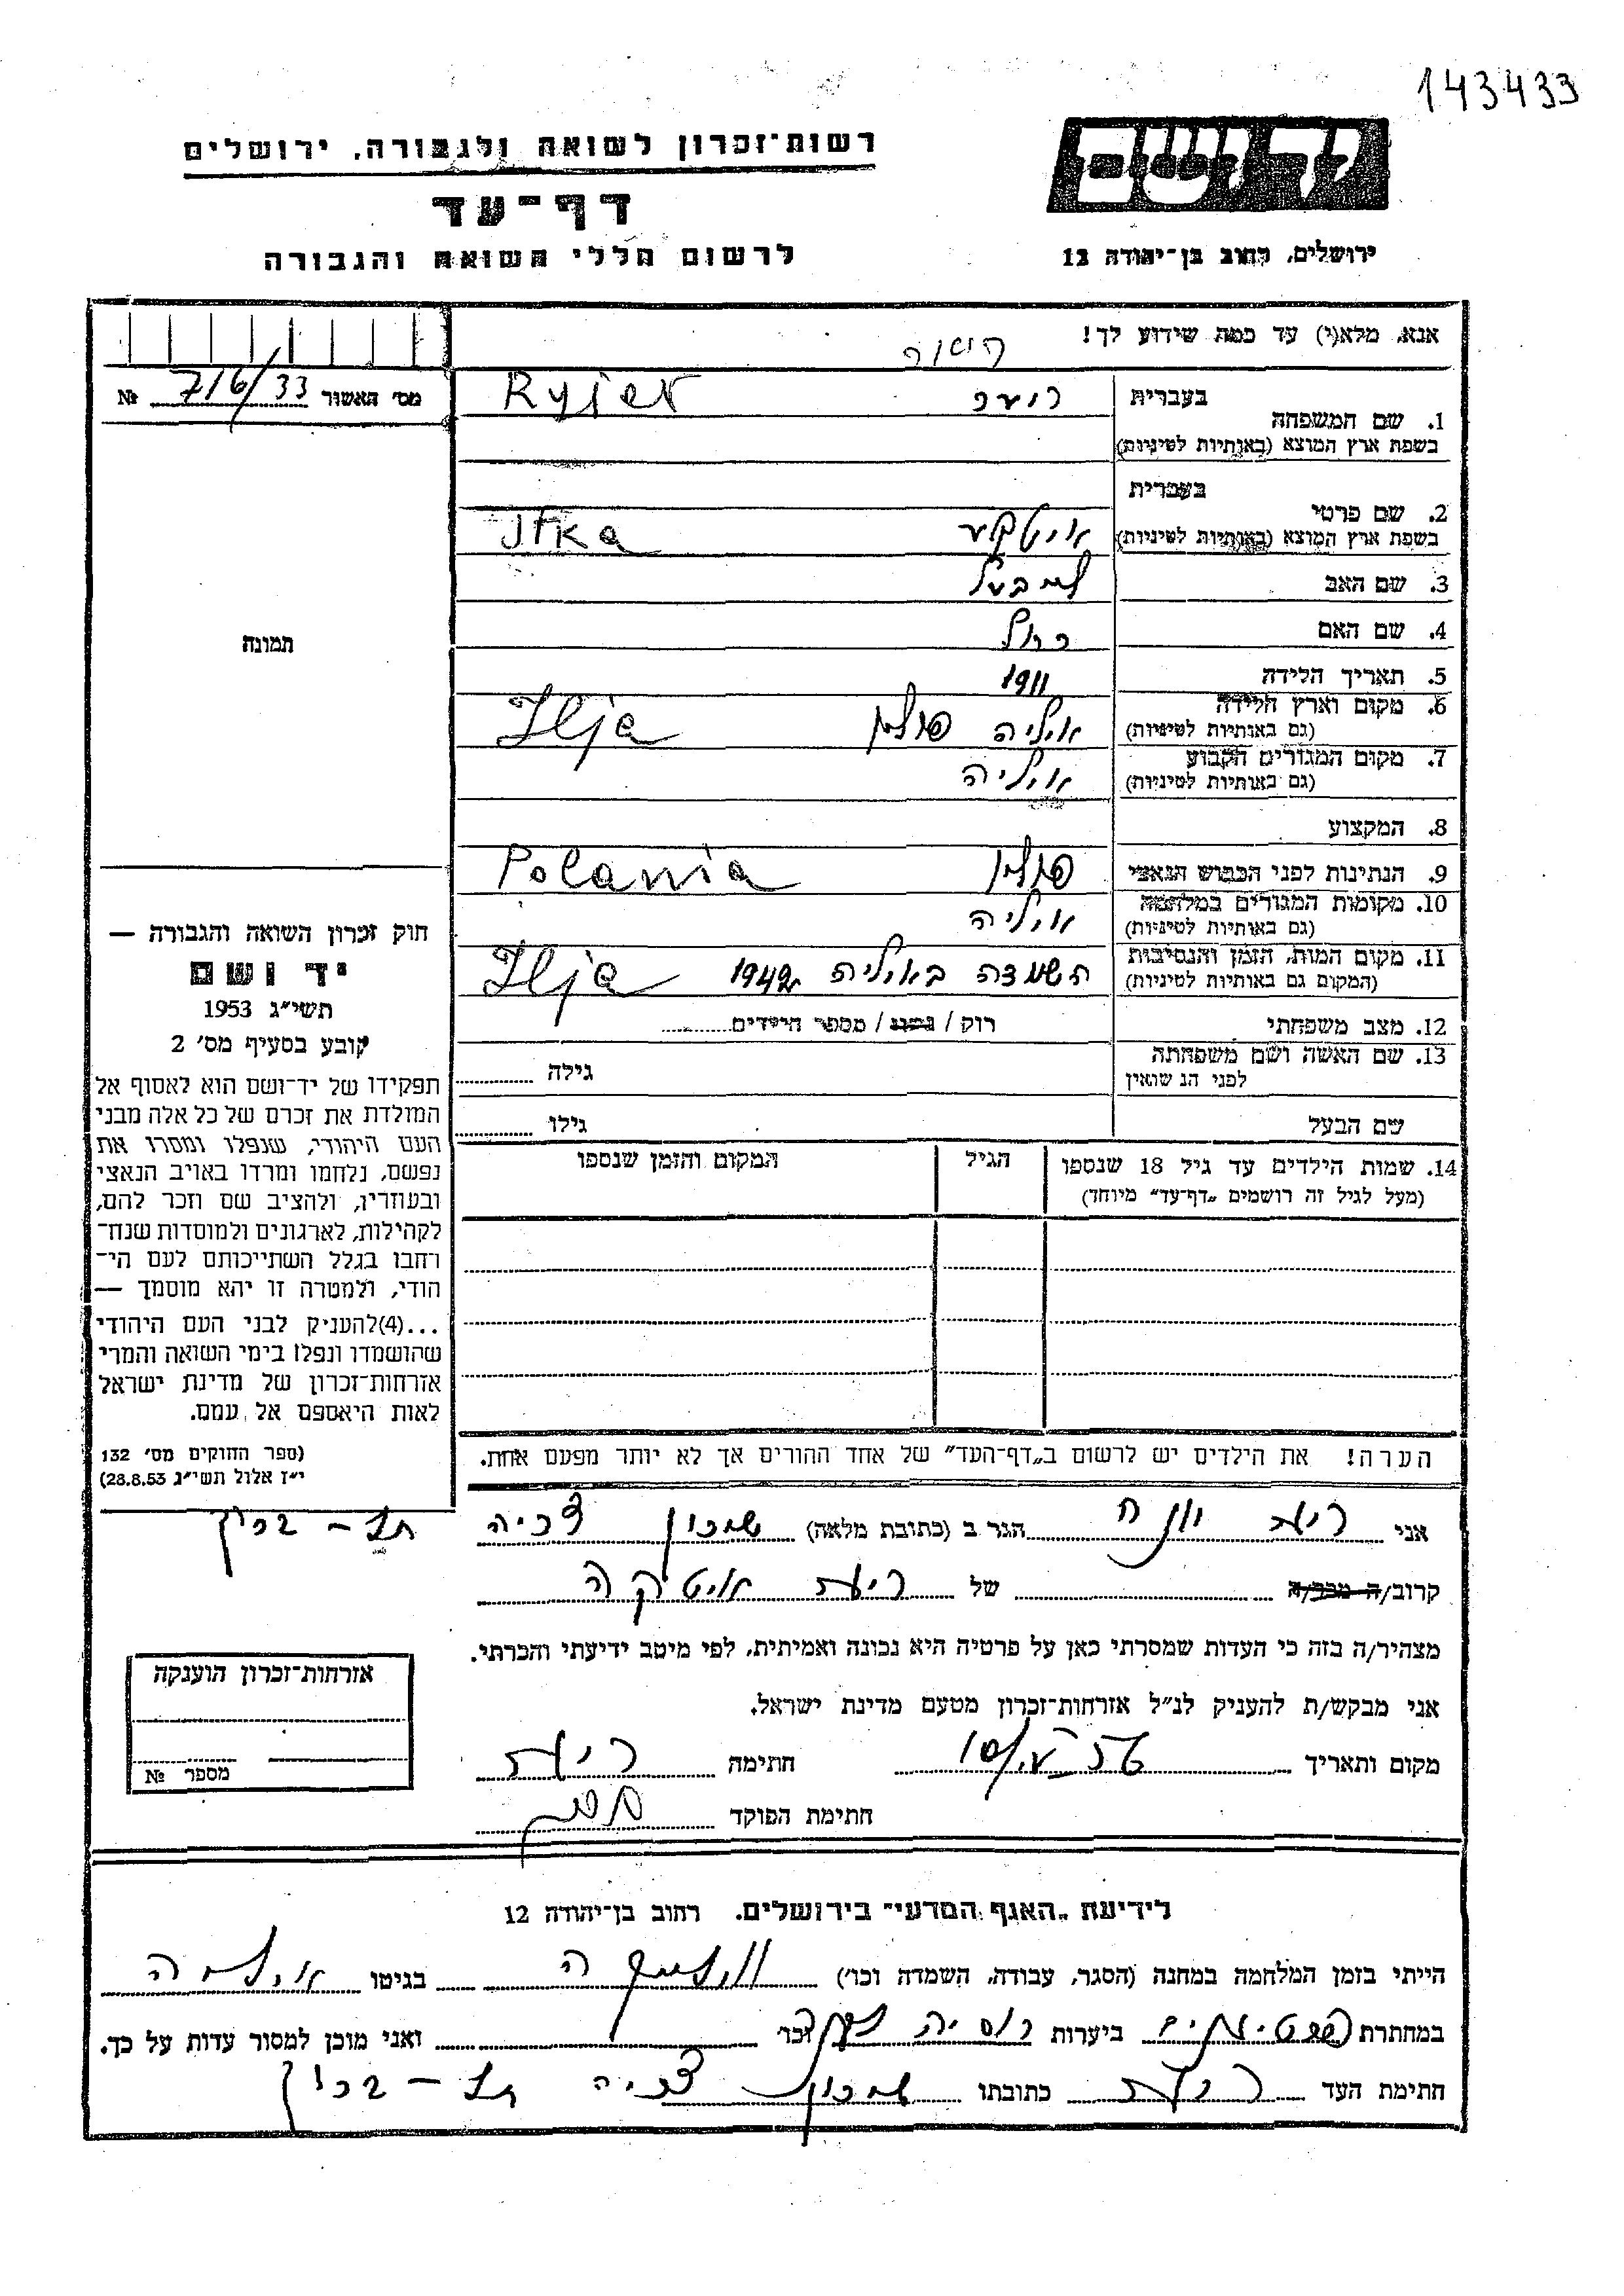 143433
רשות־זכרון לשואה ולגבורה, ירושלים
דף־עד
לרשום חללי השואה והגבורה
יד ושם
ירושלים, רחוב בן־יהודה 12
אנא, מלא(י) עד כמה שידוע לך!
מס׳ האשור 716/33 №
תמונה
חוק זכרון השואה והגבורה —
יד ושם
תשי״ג 1953
קובע בסעיף מס׳ 2
תפקידו של יד־ושם הוא לאסוף אל
המולדת את זכרם של כל אלה מבני
העם היהודי, שנפלו ומסרו את
נפשם, נלחמו ומרדו באויב הנאצי
ובעוזריו, ולהציב שם וזכר להם,
לקהילות, לארגונים ולמוסדות שנח־
רחבו בגלל השתייכותם לעם הי־
הודי, ולמטרה זו יהא מוסמך —
...(4)להעניק לבני העם היהודי
שהושמדו ונפלו בימי השואה והמרי
אזרחות־זכרון של מדינת ישראל
לאות היאספם אל עמם.
(ספר החוקים מס׳ 132
י״ז אלול תשי״ג 28.8.53)
בעברית Ryjer
1. שם המשפחה
בשפת ארץ המוצא (באותיות לטיניות)
בעברית
2. שם פרטי
בשפת ארץ המוצא (באותיות לטיניות) איטקע Itka
3. שם האב
4. שם האם רחל
5. תאריך הלידה 1911
6. מקום וארץ הלידה
(גם באותיות לטיניות) איליה פולין Ilja
7. מקום המגורים הקבוע
(גם באותיות לטיניות) איליה
8. המקצוע
9. הנתינות לפני הכבוש הנאצי פולין Polania
10. מקומות המגורים במלחמה
(גם באותיות לטיניות) איליה
11. מקום המות, הזמן והנסיבות
(המקום גם באותיות לטיניות) השמדה באיליה 1942 Ilja
12. מצב משפחתי רוק / נשוי / מספר הילדים
13. שם האשה ושם משפחתה
לפני הנשואין גילה
שם הבעל גילו
14. שמות הילדים עד גיל 18 שנספו
(מעל לגיל זה רושמים „דף־עד״ מיוחד)
הגיל
המקום והזמן שנספו
הערה! את הילדים יש לרשום ב„דף־העד״ של אחד ההורים אך לא יותר מפעם אחת.
אני הגר ב (כתובת מלאה) שכון
קרוב/ה מכר/ה של איטקה
מצהיר/ה בזה כי העדות שמסרתי כאן על פרטיה היא נכונה ואמיתית, לפי מיטב ידיעתי והכרתי.
אני מבקש/ת להעניק לנ״ל אזרחות־זכרון מטעם מדינת ישראל.
מקום ותאריך חתימה
חתימת הפוקד
אזרחות־זכרון הוענקה
מספר №
לידיעת „האגף המדעי״ בירושלים. רחוב בן־יהודה 12
הייתי בזמן המלחמה במחנה (הסגר, עבודה, השמדה וכו׳) בגיטו איליה
במחתרת ביערות רוסיה וכו׳ ואני מוכן למסור עדות על כך.
חתימת העד כתובתו שכון